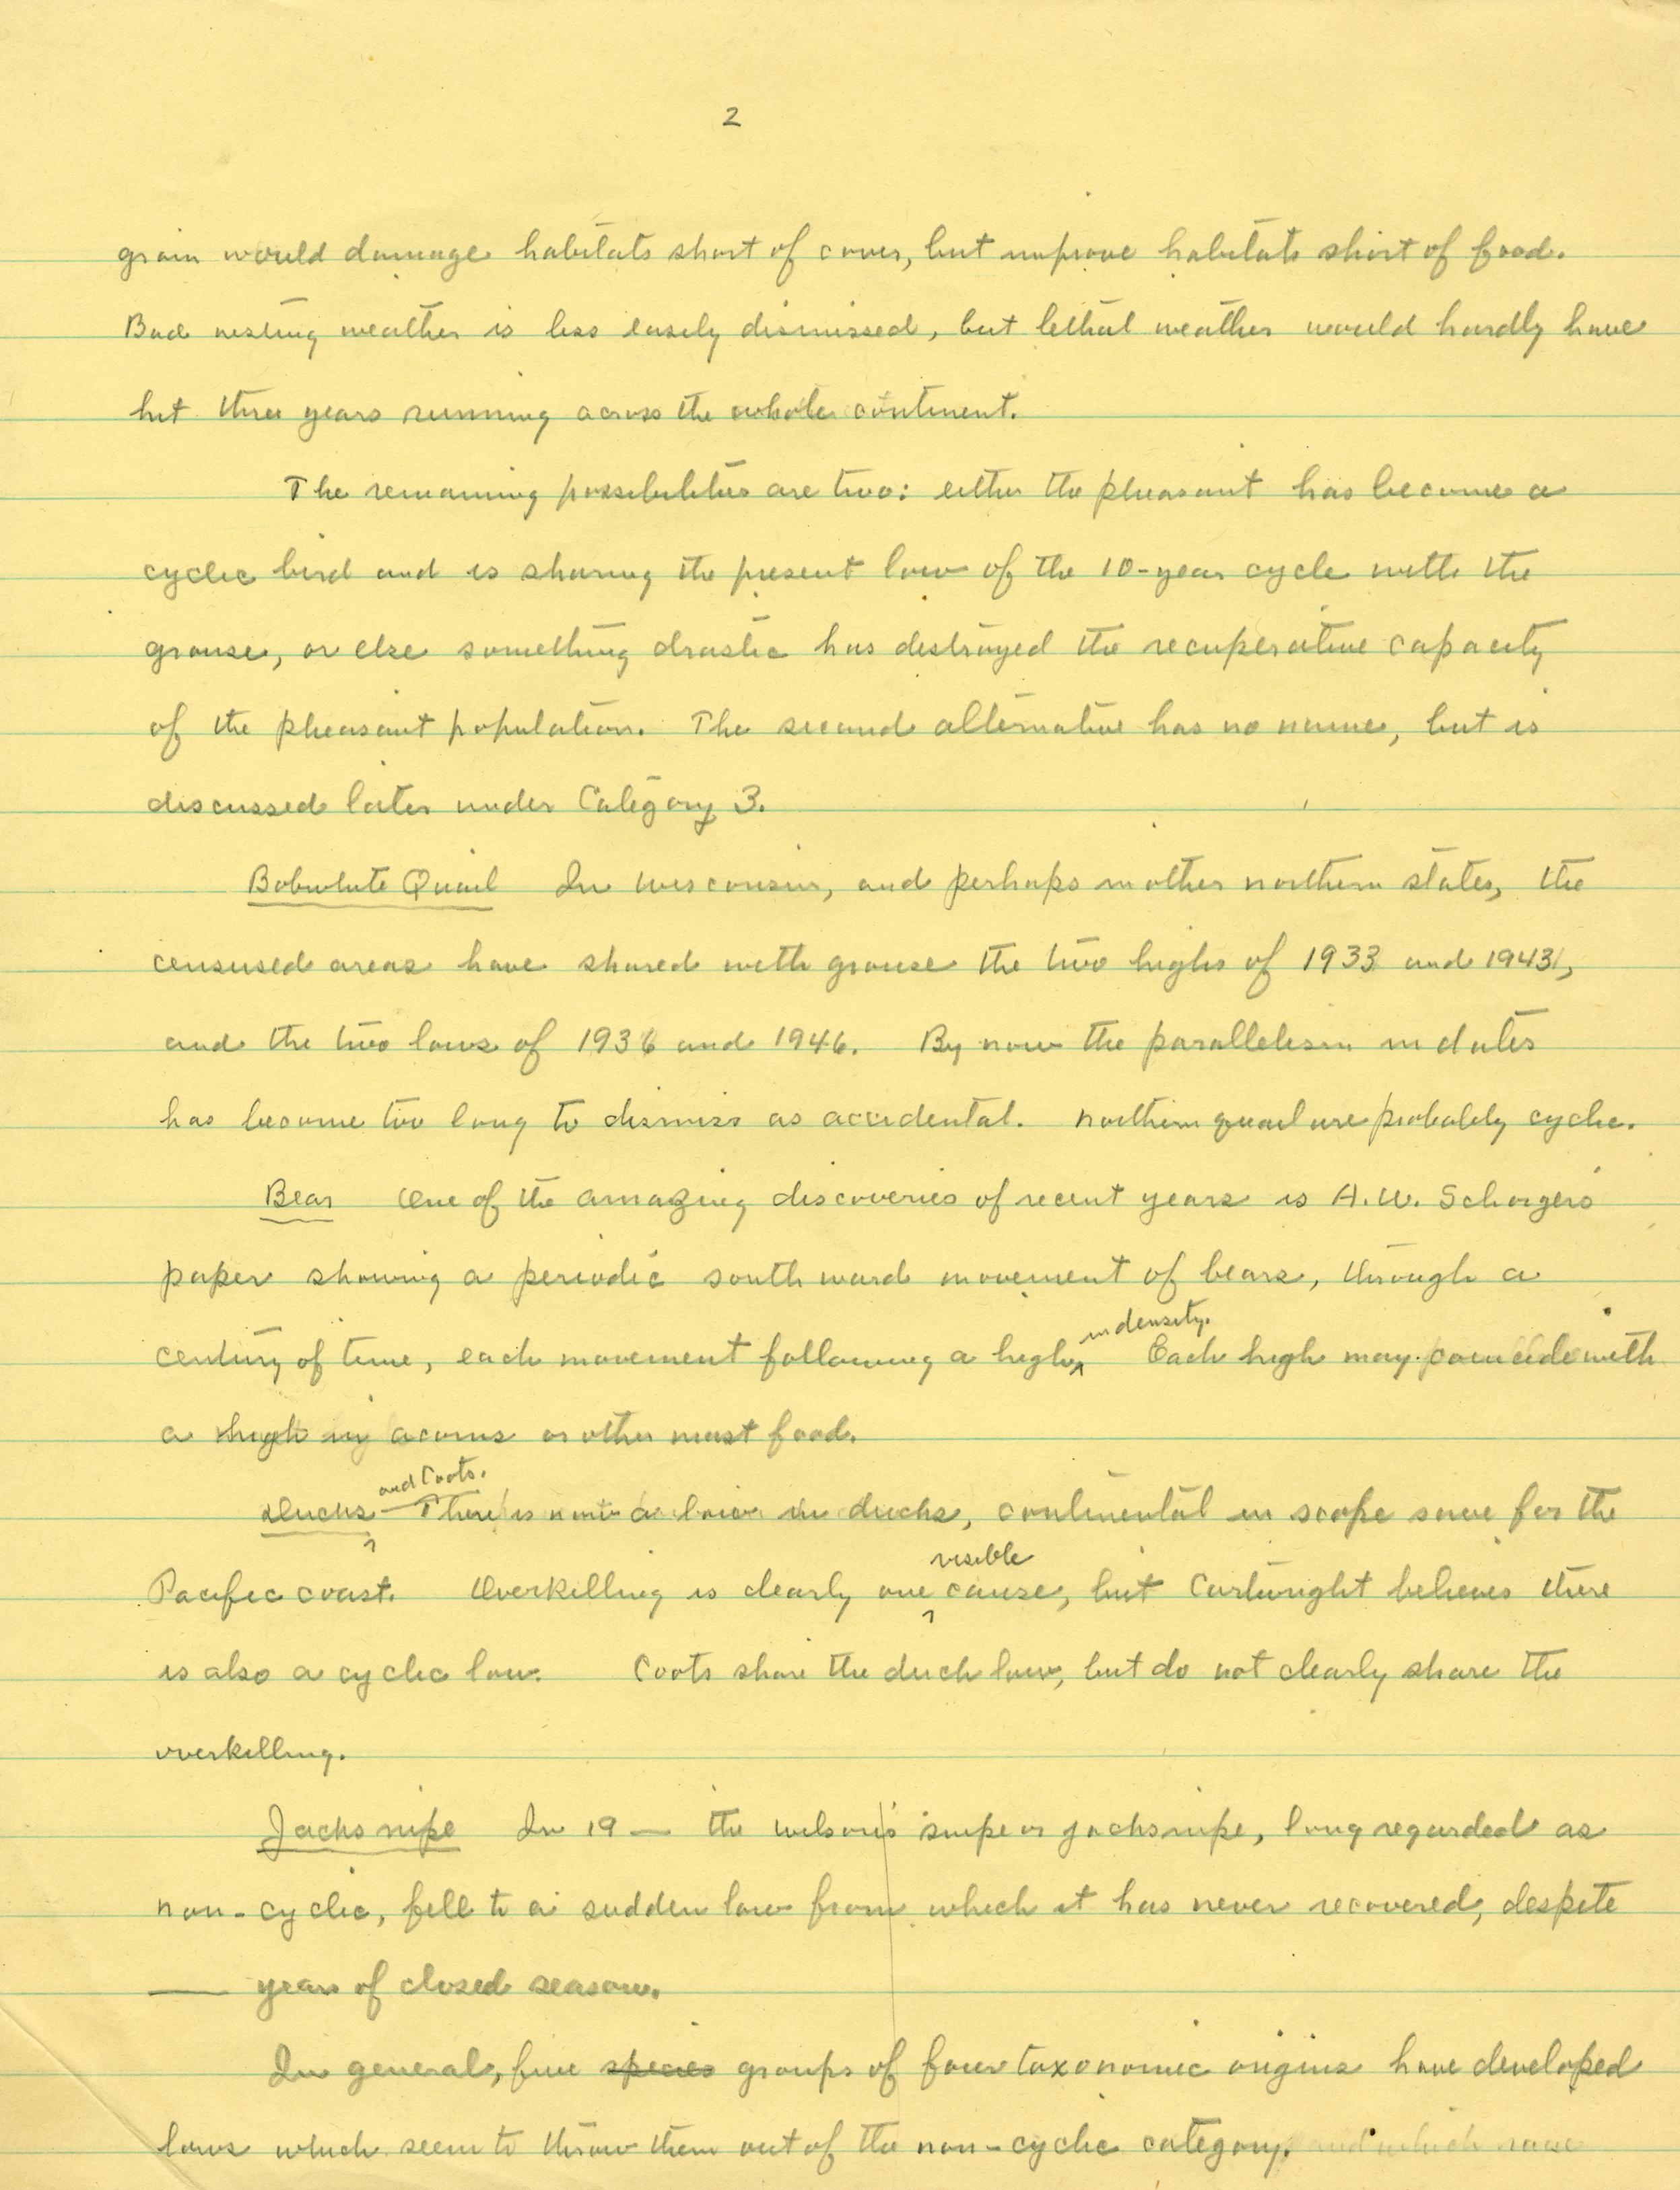 2
grain would damage habitats short of cover, but improve habitats short of food.
Bad nesting weather is less easily dismissed, but lethal weather would hardly have
hit three years running across the whole continent.
The remaining possibilities are two: either the pheasant has become a
cyclic bird and is sharing the present low of the 10-year cycle with the
grouse, or else something drastic has destroyed the recuperative capacity
of the pheasant population. The second alternative has no name, but is
discussed later under Category 3.
Bobwhite Quail In Wisconsin, and perhaps in other northern states, the
censused areas have shared with grouse the two highs of 1933 and 1943,
and the two lows of 1936 and 1946. By now the parallelism in dates
has become too long to dismiss as accidental. Northern quail are probably cyclic.
Bear One of the amazing discoveries of recent years is A.W. Schorger's
paper showing a periodic southward movement of bears, through a
in density.
century of time, each movement following a high Each high may coincide with
a high in acorns or other mast food.
and Coots.
Ducks There is now a low in ducks, continental in scope save for the
visible
Pacific coast. Overkilling is clearly one cause, but Cartwright believes there
is also a cyclic low. Coots share the duck low, but do not clearly share the
overkilling.
Jacksnipe In 19— the Wilson's snipe or jacksnipe, long regarded as
non-cyclic, fell to a sudden low from which it has never recovered, despite
— years of closed season.
In general, five species groups of four taxonomic origins have developed
lows which seem to throw them out of the non-cyclic category. and which